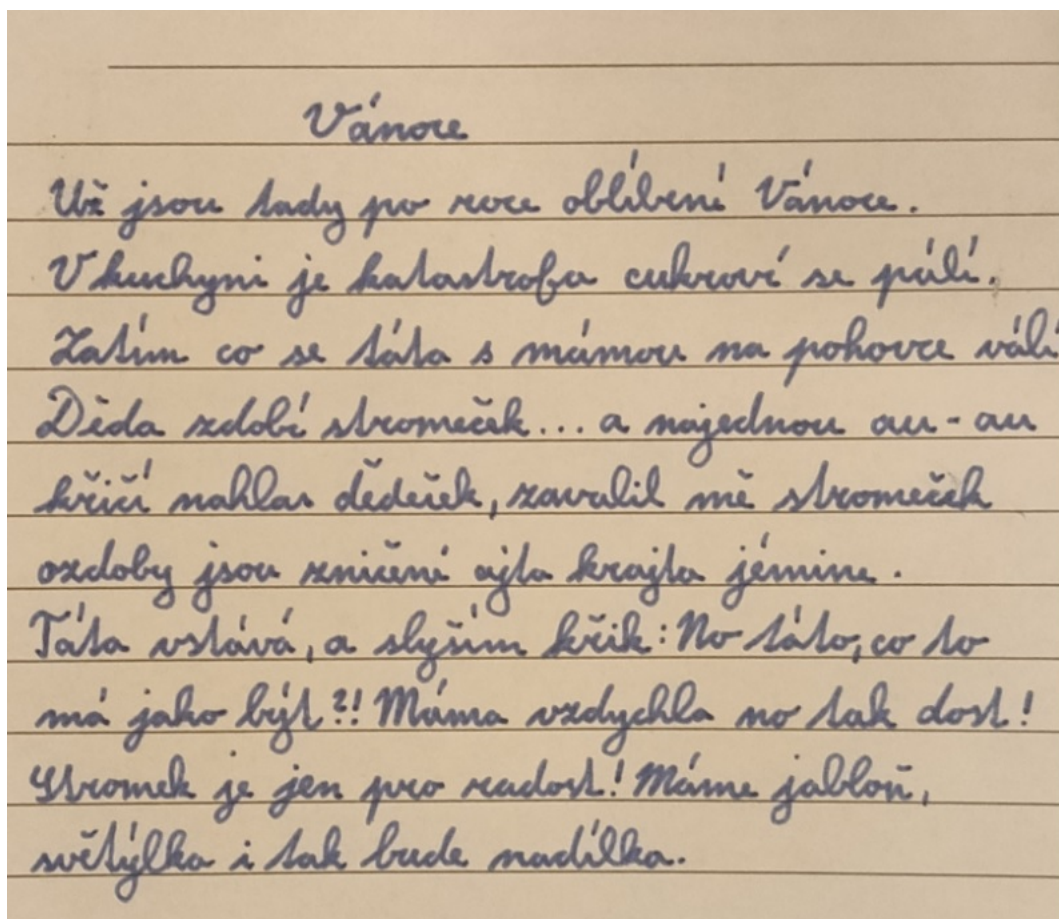 Vánoce
Už jsou tady po roce oblíbené Vánoce.
V kuchyni je katastrofa cukroví se pálí.
Zatím co se táta s mámou na pohovce válí
Děda zdobí stromeček... a najednou au-au
křičí nahlas dědeček, zavalil mě stromeček
ozdoby jsou zničené ajta krajta jémine.
Táta vstává, a slyším křik: No táto, co to
má jako být?! Máma vzdychla no tak dost!
Stromek je jen pro radost! Máme jabloň,
světýlka i tak bude nadílka.